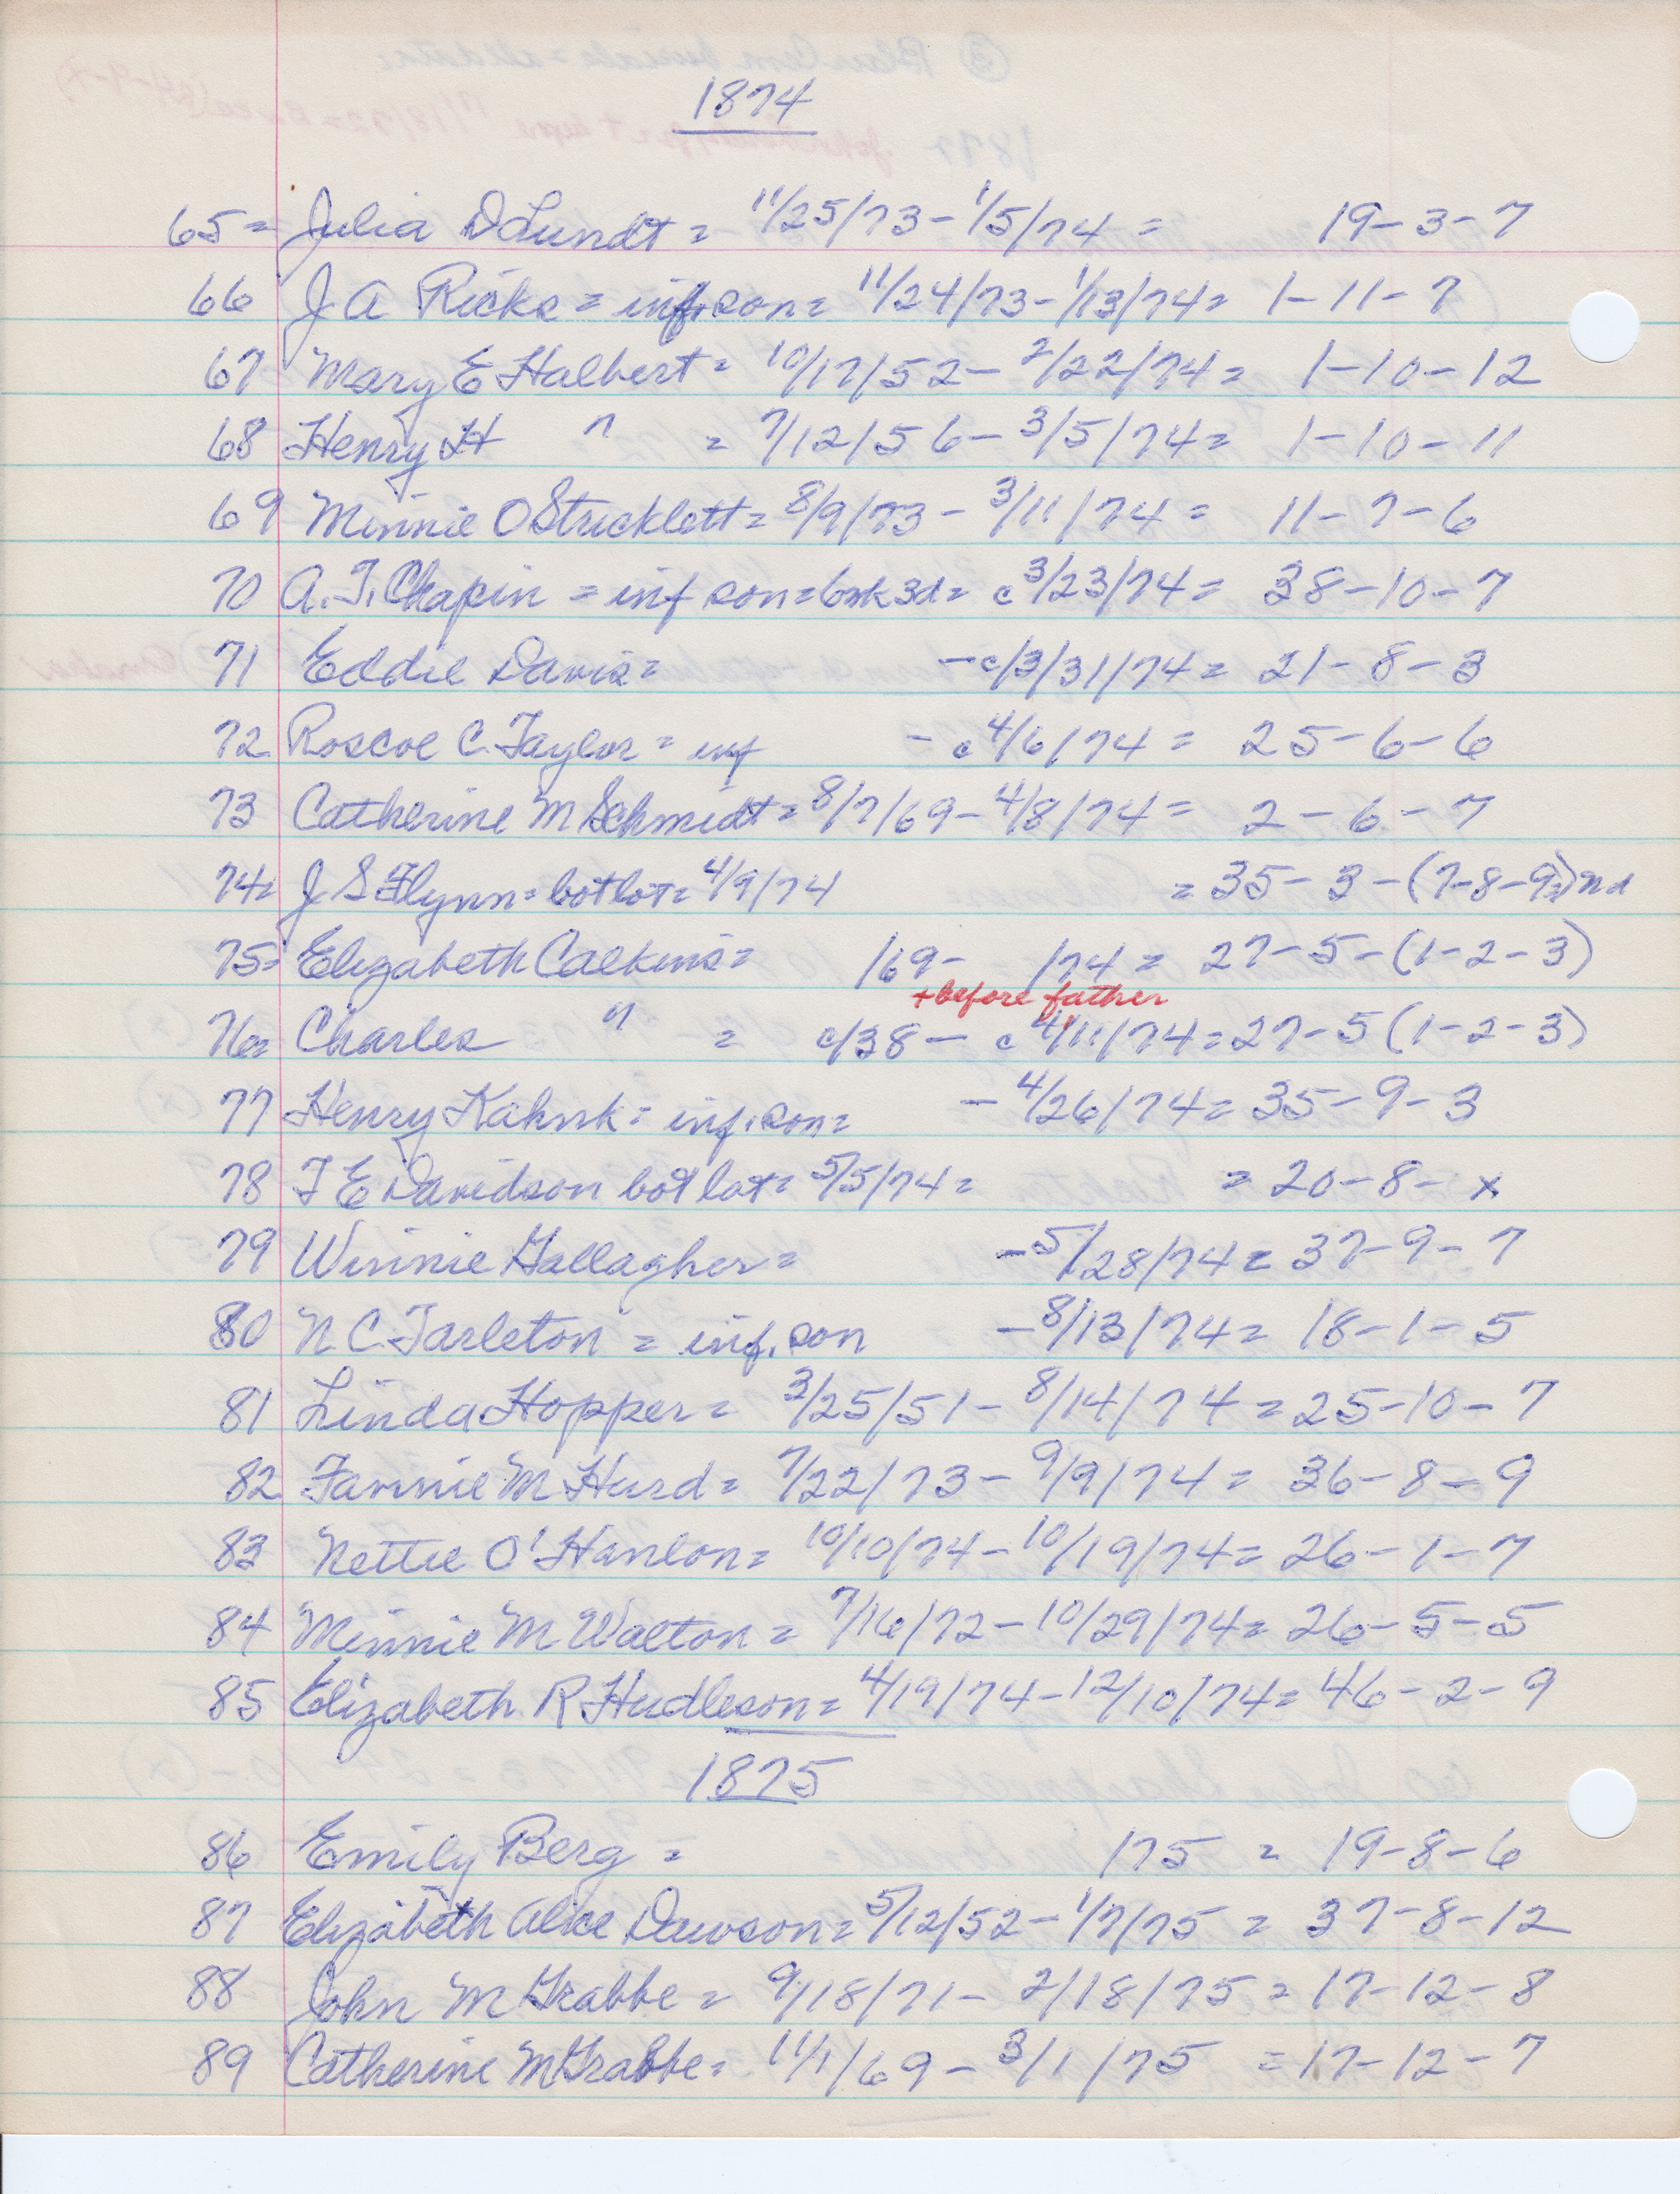 1874
65= Julia D Lundt = 11/25/73 - 1/5/74 = 19-3-7
66 J A Ricks = inf. son = 11/24/73 - 1/13/74 = 1-11-7
67 Mary E Halbert = 10/17/52 - 2/22/74 = 1-10-12
68 Henry H " = 7/12/56 - 3/5/74 = 1-10-11
69 Minnie O Stricklett = 8/9/73 - 3/11/74 = 11-7-6
70 A. T. Chapin = inf son = 6mk 3d = c 3/23/74 = 38-10-7
71 Eddie Davis = - c/3/31/74 = 21-8-3
72 Roscoe C. Taylor = inf - c 4/6/74 = 25-6-6
73 Catherine M Schmidt = 8/7/69 - 4/8/74 = 2-6-7
74= J S Flynn = bot lot = 4/9/74 = 35-3-(7-8-9=) nd
75= Elizabeth Calkins = /69 - /74 = 27-5-(1-2-3)
+ before father
76= Charles " = c/38 - c 4/11/74 = 27-5 (1-2-3)
77 Henry Kahnk = inf. son = - 4/26/74 = 35-9-3
78 T E Davidson bot lot = 5/5/74 = = 20-8-x
79 Winnie Gallagher = - 5/28/74 = 37-9-7
80 N C Tarleton = inf. son - 8/13/74 = 18-1-5
81 Linda Hopper = 3/25/51 - 8/14/74 = 25-10-7
82 Fannie M Hurd = 7/22/73 - 9/9/74 = 36-8-9
83 Nettie O'Hanlon = 10/10/74 - 10/19/74 = 26-1-7
84 Minnie M Walton = 7/16/72 - 10/29/74 = 26-5-5
85 Elizabeth R Hudleson = 4/19/74 - 12/10/74 = 46-2-9
1875
86 Emily Berg = /75 = 19-8-6
87 Elizabeth Alice Dawson = 5/12/52 - 1/7/75 = 37-8-12
88 John M Grabbe = 9/18/71 - 2/18/75 = 17-12-8
89 Catherine M Grabbe = 11/1/69 - 3/1/75 = 17-12-7